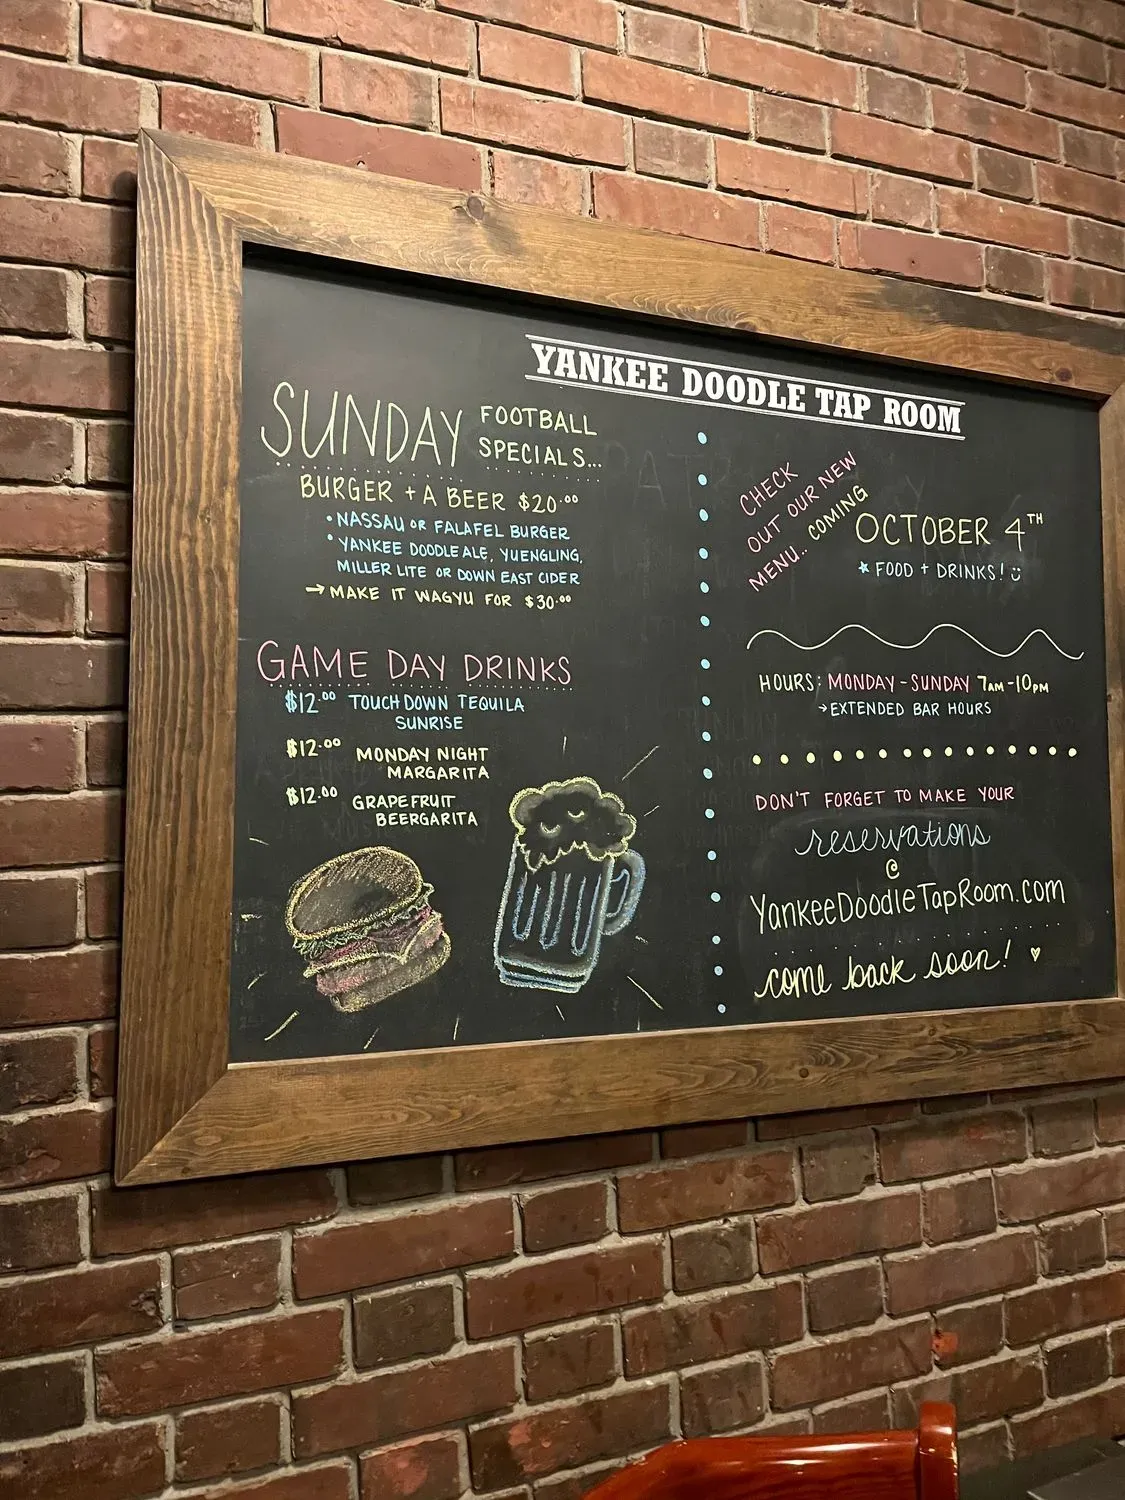 YANKEE DOODLE TAP ROOM
SUNDAY FOOTBALL
SPECIALS...
BURGER + A BEER $20.00
• NASSAU OR FALAFEL BURGER
• YANKEE DOODLE ALE, YUENGLING,
MILLER LITE OR DOWN EAST CIDER
→ MAKE IT WAGYU FOR $30.00
GAME DAY DRINKS
$12.00 TOUCHDOWN TEQUILA
SUNRISE
$12.00 MONDAY NIGHT
MARGARITA
$12.00 GRAPEFRUIT
BEERGARITA
CHECK
OUT OUR NEW
MENU.. COMING
OCTOBER 4TH
★ FOOD + DRINKS! ☺
HOURS: MONDAY - SUNDAY 7AM-10PM
→ EXTENDED BAR HOURS
DON'T FORGET TO MAKE YOUR
reservations
@
YankeeDoodleTapRoom.com
come back soon! ♡